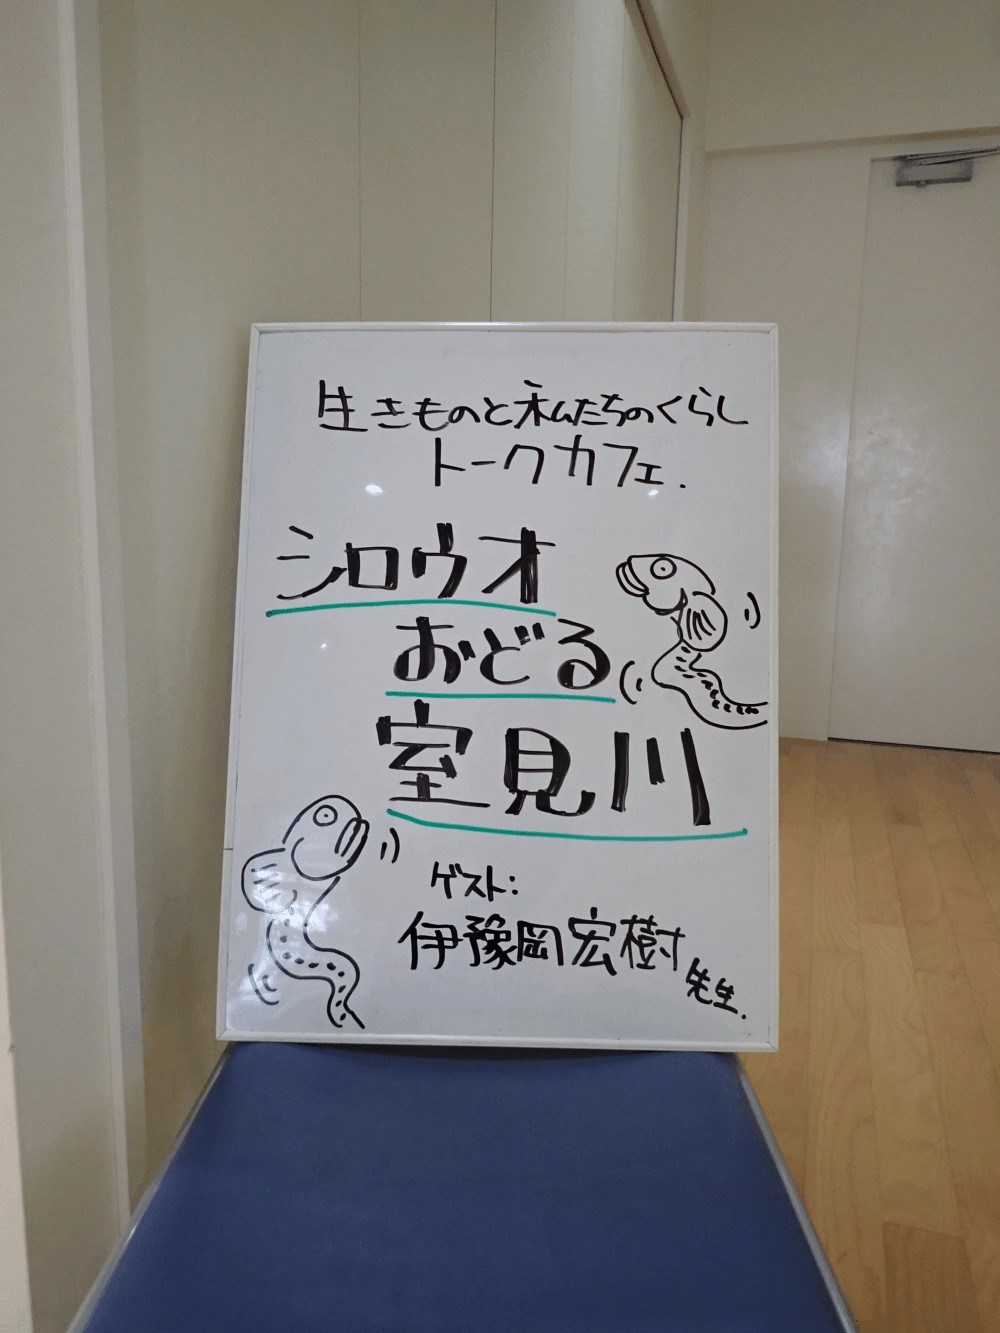 生きものと私たちのくらし
トークカフェ.
シロウオ
おどる
室見川
ゲスト:
伊豫岡宏樹先生.